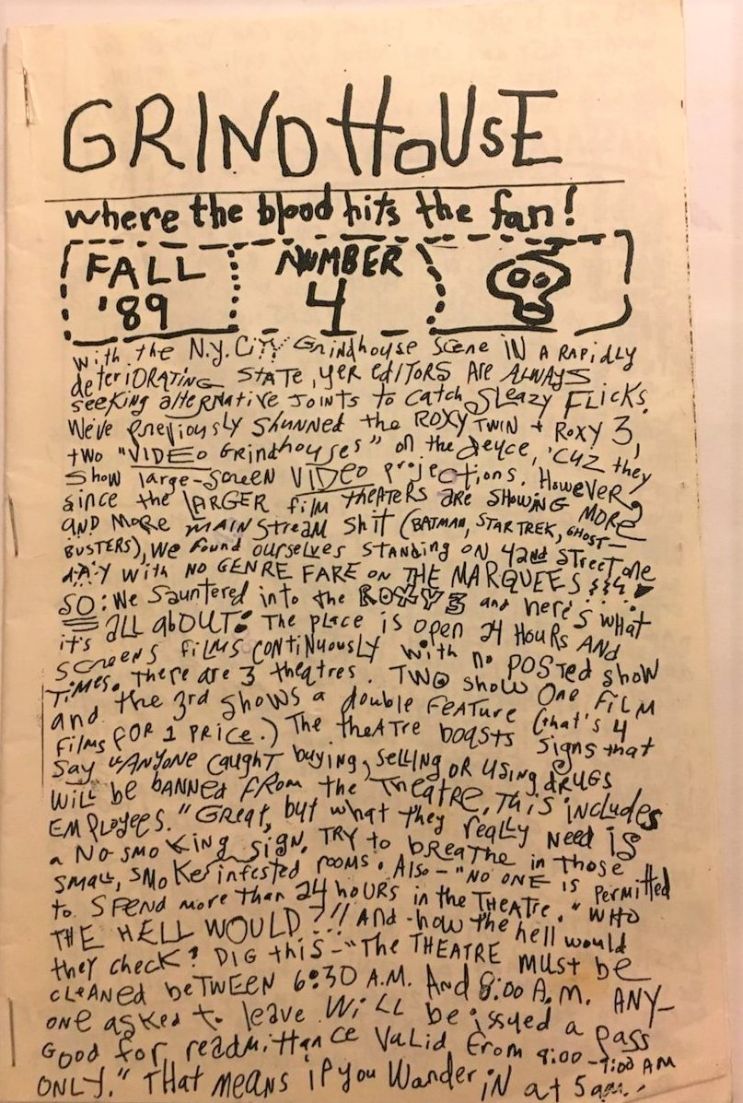 GRINDHOUSE
where the blood hits the fan!
FALL '89
NUMBER 4
with the N.Y. CITY Grindhouse Scene IN A RAPIDLY
deteriORATING STATE, yer editORS ARE ALWAYS
seeking alterNative JOINTS to CATCH SLEAZY FLICKS.
We've previously shunned the ROXY TWIN + ROXY 3,
two "VIDEO Grindhouses" on the deuce, 'CUZ they
show large-screen VIDEO projections. However,
since the LARGER film THEATERS ARE SHOWING MORE
AND MORE MAINStream Shit (BATMAN, STAR TREK, GHOST-
BUSTERS), WE found ourselves STANDING ON 42nd STREET one
DAY WITH NO GENRE FARE ON THE MARQUEES
SO: We Sauntered into the ROXY 3 and here's what
it's all abOUT: The place is open 24 HOURS AND
SCREENS FILMS CONTINUOUSLY with no POSTED show
TIMES. There are 3 theatres. TWO show One FILM
and the 3rd shows a double FEATURE (that's 4
films FOR 1 PRICE.) The theATre boasts signs that
Say "ANYONE CAUGHT buying, SELLING OR USING DRUGS
WILL be bANNed FROM the Theatre. THIS includes
EMPLOYEES." Great, but what they really Need IS
a No SMOKING sign. TRY to bREATHE in those
SMALL, SMOKE infested rooms. Also - "NO ONE IS Permitted
to SPEND more than 24 hOURS in the THEATRE." WHO
THE HELL WOULD?!! And how the hell would
they check? DIG this - "The THEATRE MUST be
CLEANED beTWEEN 6:30 A.M. And 8:00 A.M. ANY-
ONE asked to leave WiLL be issued a pass
Good for readmittance Valid From 8:00 - 9:00 AM
ONLY." THAT means if you Wander iN at 5 am..